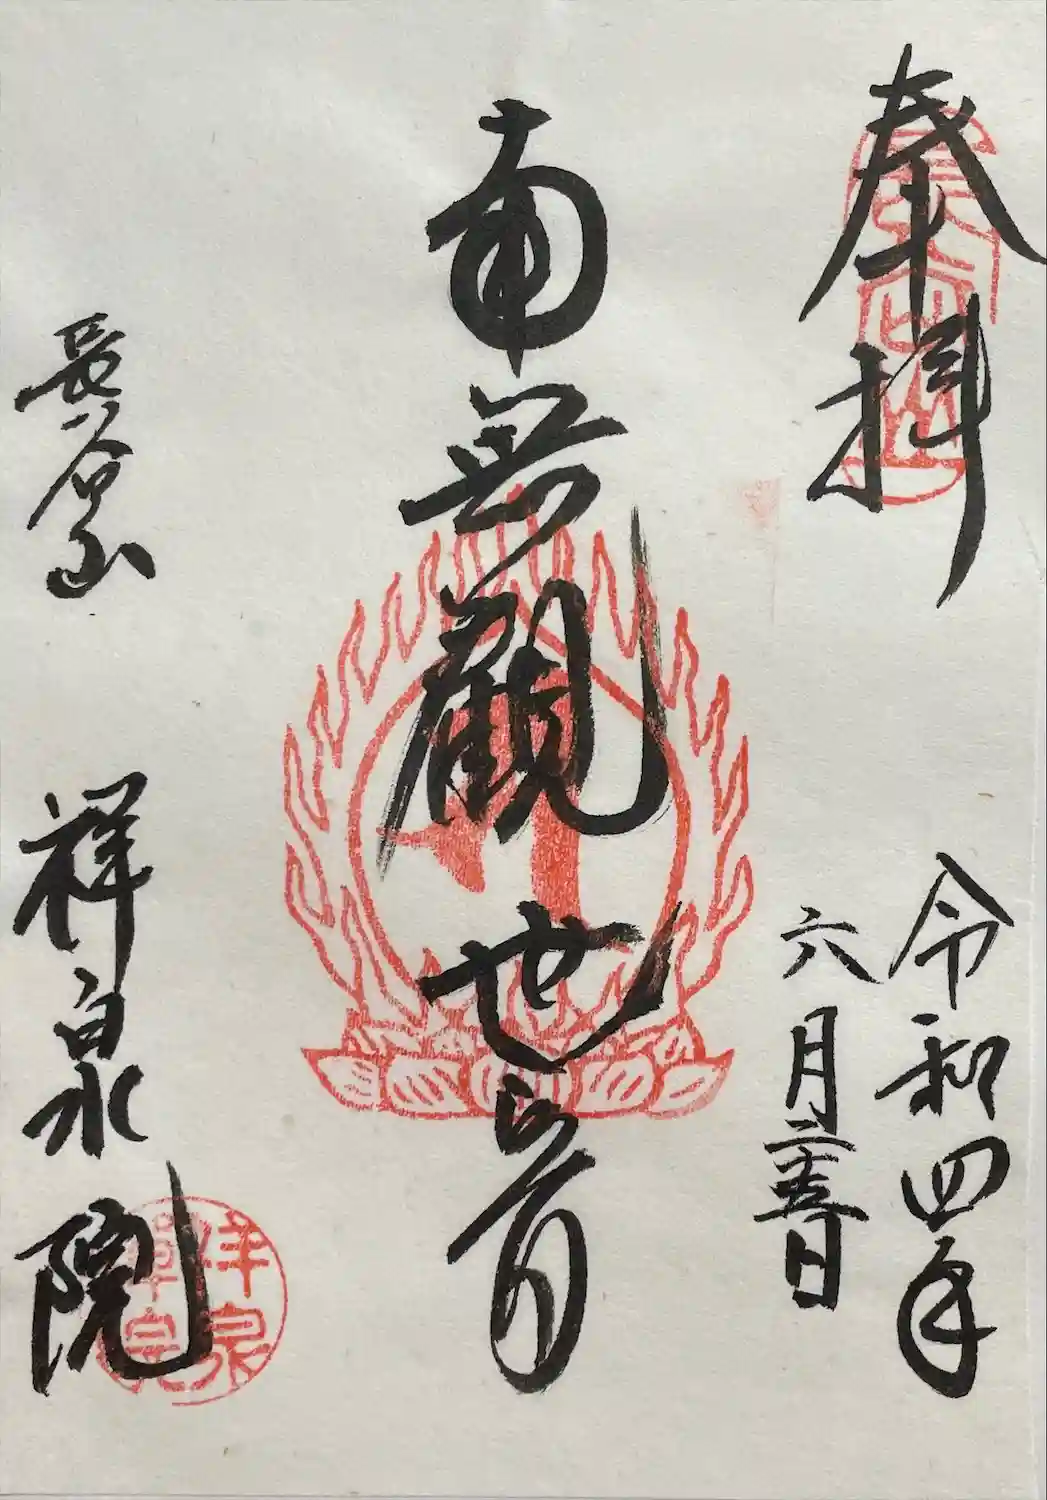 奉拝
令和四年
六月二十五日
南無觀世音
長谷山
祥泉院